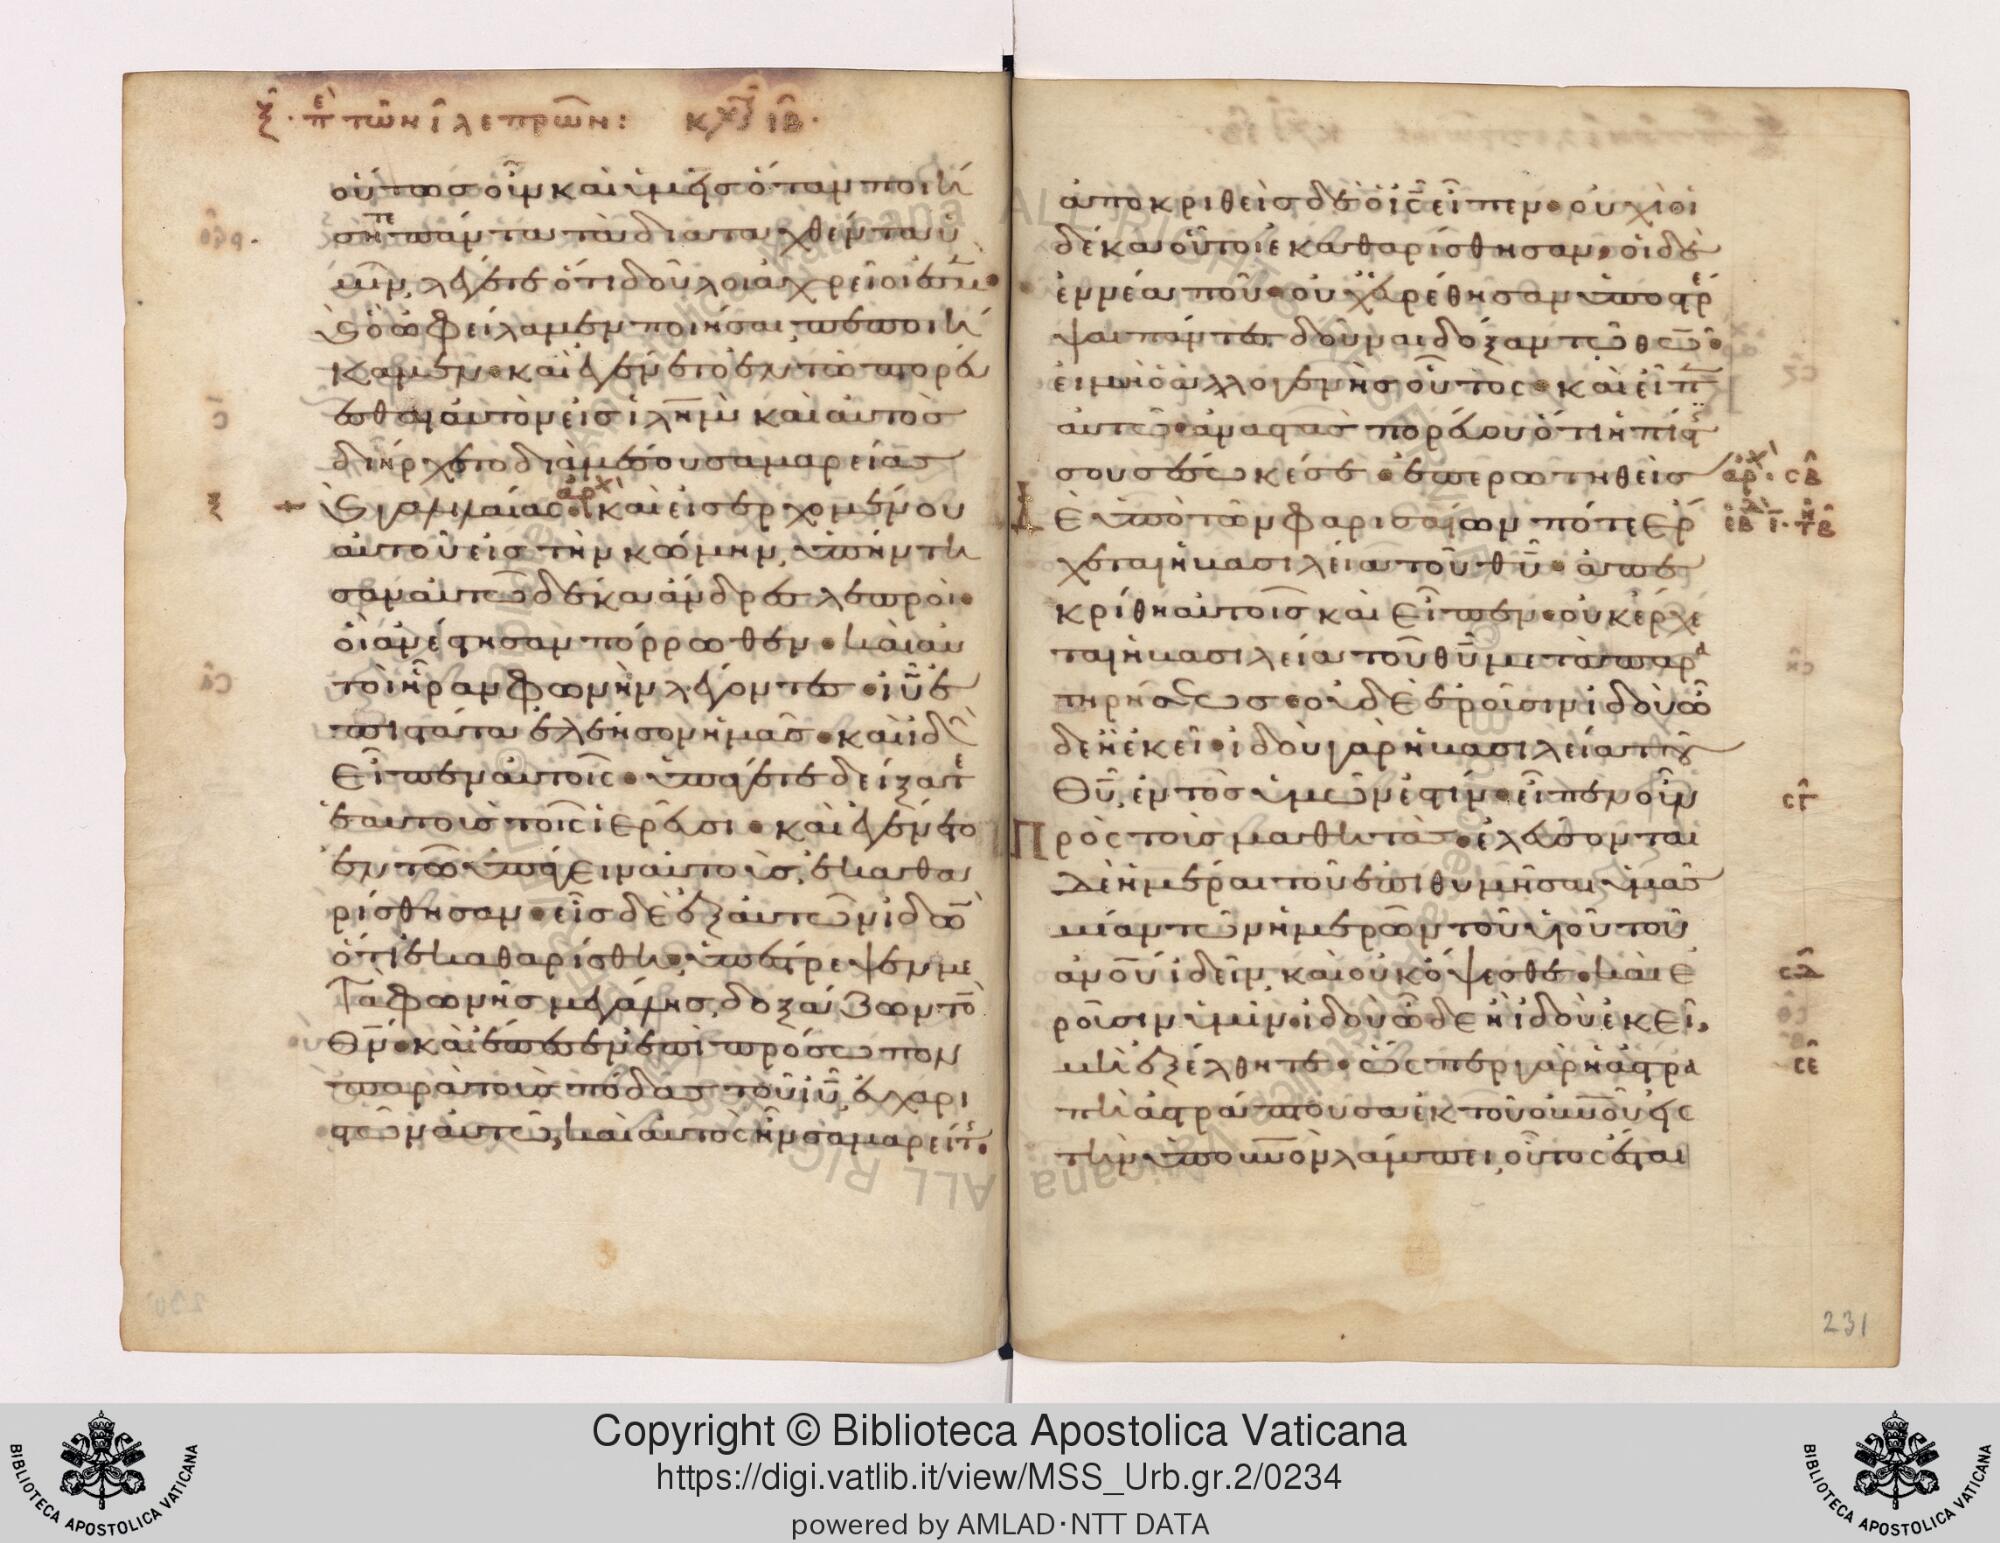 ξ̂. πε τῶν ι̂ λεπρῶν: κυ ιβ̂.
οὕτως οὖν καὶ ὑμεῖς ὅταν ποιή
σητε πάντα τὰ διαταχθέντα ὑ
μῖν, λέγετε ὅτι δοῦλοι ἀχρεῖοί ἐσμ
ὃ ὠφείλαμεν ποιῆσαι, πεποιή
καμεν. καὶ ἐγένετο ἐν τῶ πορεύ
εσθαι αὐτὸν εἰς ἰλη̄μ καὶ αὐτὸς
διήρχετο διὰ μέσου σαμαρείας
γαλιλαίας. αρχ καὶ εἰσερχομένου
αὐτοῦ εἰς τὴν κώμην, ὑπήντη
σαν αὐτῶ δέκα ἄνδρες λεπροί.
οἳ ἀνέστησαν πόρρωθεν. καὶ αὐ
τοὶ ἦραν φωνὴν λέγοντες. ἰῦ ἐ
πιστάτα ἐλέησον ἡμᾶς. καὶ ἰδ
εἶπεν αὐτοῖς. ὑπάγετε δείξατε
ἑαυτοὺς τοῖς ἱερεῦσι. καὶ ἐγένετο
ἐν τῶ ὑπάγειν αὐτοὺς, ἐκαθα
ρίσθησαν. εἷς δὲ ἐξ αὐτῶν ἰδὼ
ὅτι ἐκαθαρίσθη, ὑπέστρεψεν με
τὰ φωνῆς μεγάλης, δοξάζων τὸ
θν̄. καὶ ἔπεσεν ἐπὶ πρόσωπον
παρὰ τοὺς πόδας τοῦ ἰῦ, εὐχαρι
στῶν αὐτῶ, καὶ αὐτὸς ἦν σαμαρείτ.
ρϟθ.
ξ
ἀποκριθεὶς δὲ ὁ ις̄ εἶπεν. οὐχὶ οἱ
δέκα οὗτοι ἐκαθαρίσθησαν. οἱ δὲ
ἐννέα ποῦ. οὐχ εὑρέθησαν ὑποστρέ
ψαντες δοῦναι δόξαν τῶ θω̄.
εἰ μὴ ὁ ἀλλογενὴς οὗτος. καὶ εἶπ
αὐτῶ. ἀναστὰς πορεύου ὅτι ἡ πίστ
σου σέσωκέ σε. ἐπερωτηθεὶς
Ε ὑπὸ τῶν φαρισαίων πότε ἔρ
χεται ἡ βασιλεία τοῦ θῦ. ἀπε
κρίθη αὐτοῖς καὶ εἶπεν. οὐκ ἔρχε
ται ἡ βασιλεία τοῦ θῦ μετὰ παρα
τηρήσεως. οὐδὲ ἐροῦσιν ἰδοὺ ὧ
δε ἢ ἐκεῖ. ἰδοὺ γὰρ ἡ βασιλεία τοῦ
θῦ, ἐντὸς ὑμῶν ἐστίν. εἶπεν οὖν
πρὸς τοὺς μαθητὰς. ἐλεύσονται
δὲ ἡμέραι τοῦ ἐπιθυμῆσαι ὑμᾶς
μίαν τῶν ἡμερῶν τοῦ υἱοῦ τοῦ
ανου ἰδεῖν, καὶ οὐκ ὄψεσθε. καὶ ἐ
ροῦσιν ὑμῖν. ἰδοὺ ὧδε ἢ ἰδοὺ ἐκεῖ,
μὴ ἐξέλθητε. ὥσπερ γὰρ ἡ ἀστρα
πὴ ἀστράπτουσα ἐκ τοῦ ουνοῦ εἰς
τὴν ὑπ ουνὸν λάμπει, οὕτως ἔσται
αρχ. σβ
231
Copyright © Biblioteca Apostolica Vaticana
https://digi.vatlib.it/view/MSS_Urb.gr.2/0234
powered by AMLAD·NTT DATA
BIBLIOTECA APOSTOLICA VATICANA
BIBLIOTECA APOSTOLICA VATICANA